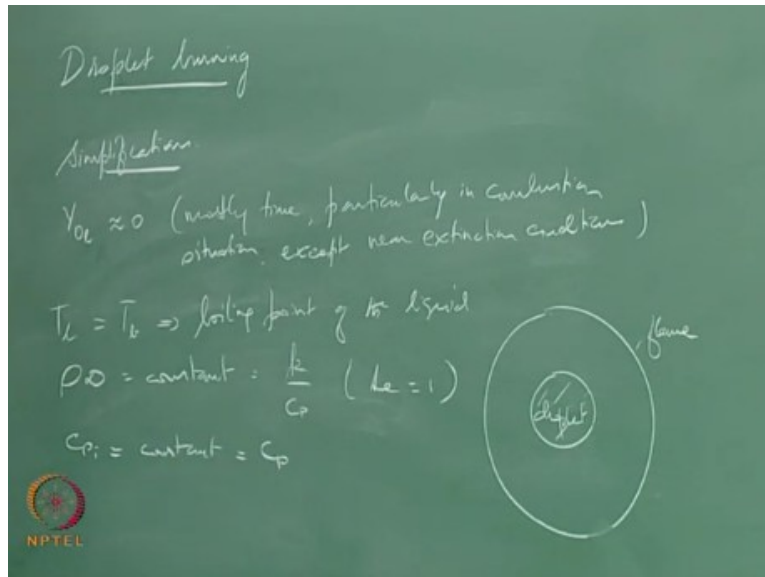 Droplet burning
Simplifications.
Y_Ol ≈ 0 (mostly true, particularly in combustion
situation, except near extinction conditions)
T_l = T_b ⇒ boiling point of the liquid
ρD = constant = k/C_p (Le = 1)
C_pi = constant = C_p
flame
droplet
NPTEL